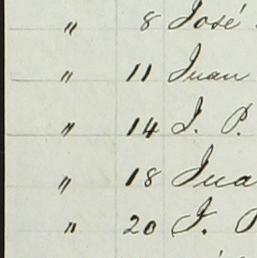 " 8 José
" 11 Juan
" 14 J. P.
" 18 Jua
" 20 J. P